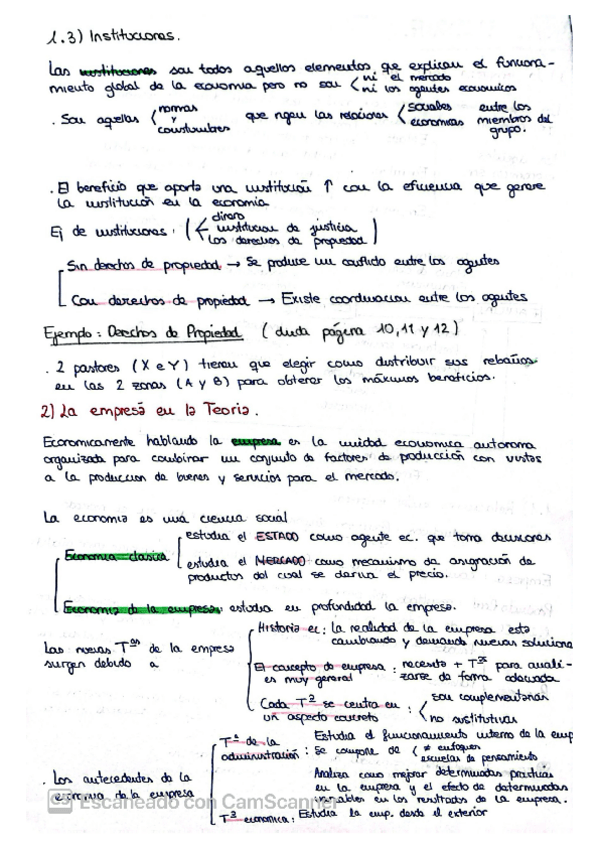 1.3) Instituciones.
Las instituciones son todos aquellos elementos que explican el funciona-
miento global de la economia pero no son < ni el mercado
ni los agentes economicos
. Son aquellas < normas y constumbres que rigen las relaciones < sociales economicas entre los miembros del grupo.
. El beneficio que aporta una institución ↑ con la eficiencia que genere
la institución en la economia
Ej de instituciones: ( < dinero
institucion de justicia
los derechos de propiedad )
Sin derechos de propiedad → Se produce un conflicto entre los agentes
Con derechos de propiedad → Existe coordinacion entre los agentes
Ejemplo: Derechos de Propiedad (duda página 10, 11 y 12)
. 2 pastores (X e Y) tienen que elegir como distribuir sus rebaños
en las 2 zonas (A y B) para obtener los máximos beneficios.
2) La empresa en la Teoria.
Economicamente hablando la empresa es la unidad economica autonoma
organizada para combinar un conjunto de factores de producción con vistas
a la produccion de bienes y servicios para el mercado.
La economia es una ciencia social
Economia clasica
estudia el ESTADO como agente ec. que toma decisiones
estudia el MERCADO como mecanismo de asignación de
productos del cual se deriva el precio.
Economia de la empresa: estudia en profundidad la empresa.
Las nuevas Tªˢ de la empresa
surgen debido a
Historia ec: la realidad de la empresa esta
cambiando y demanda nuevas soluciones
El concepto de empresa : necesito + Tªˢ para anali-
es muy general zarse de forma adecuada
Cada Tª se centra en : < son complementarias
un aspecto concreto no sustitutivas
. Los antecedentes de la
economia de la empresa
Tª de la administración:
Estudia el funcionamiento interno de la emp
Se compone de < ≠ enfoques
escuelas de pensamiento
Analiza como mejorar determinadas practicas
en la empresa y el efecto de determinadas
variables en los resultados de la empresa.
Tª economica: Estudia la emp. desde el exterior
CS Escaneado con CamScanner